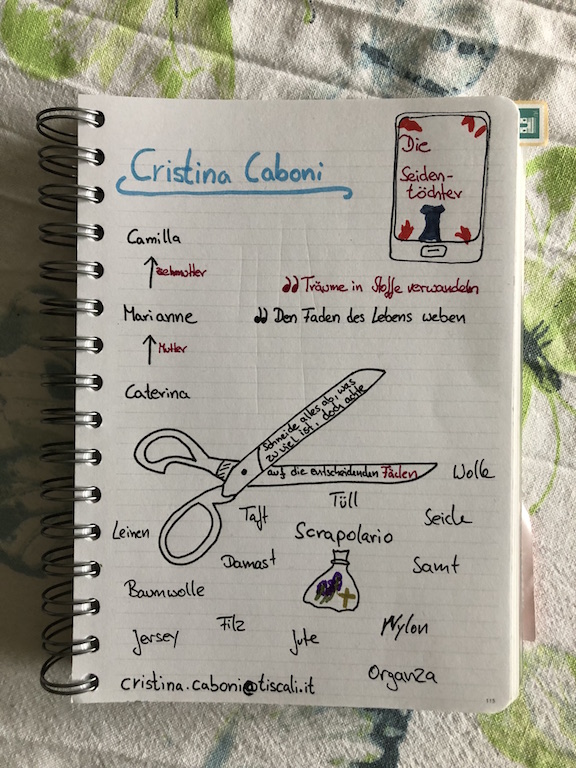 Cristina Caboni
Die
Seiden-
töchter
Camilla
Ziehmutter
Träume in Stoffe verwandeln
Marianne
Den Faden des Lebens weben
Mutter
Caterina
Schneide alles ab, was
zu viel ist, doch achte
auf die entscheidenden Fäden
Wolle
Tüll
Taft
Seide
Leinen
Scrapolario
Damast
Samt
Baumwolle
Filz
Nylon
Jersey
Jute
Organza
cristina.caboni@tiscali.it